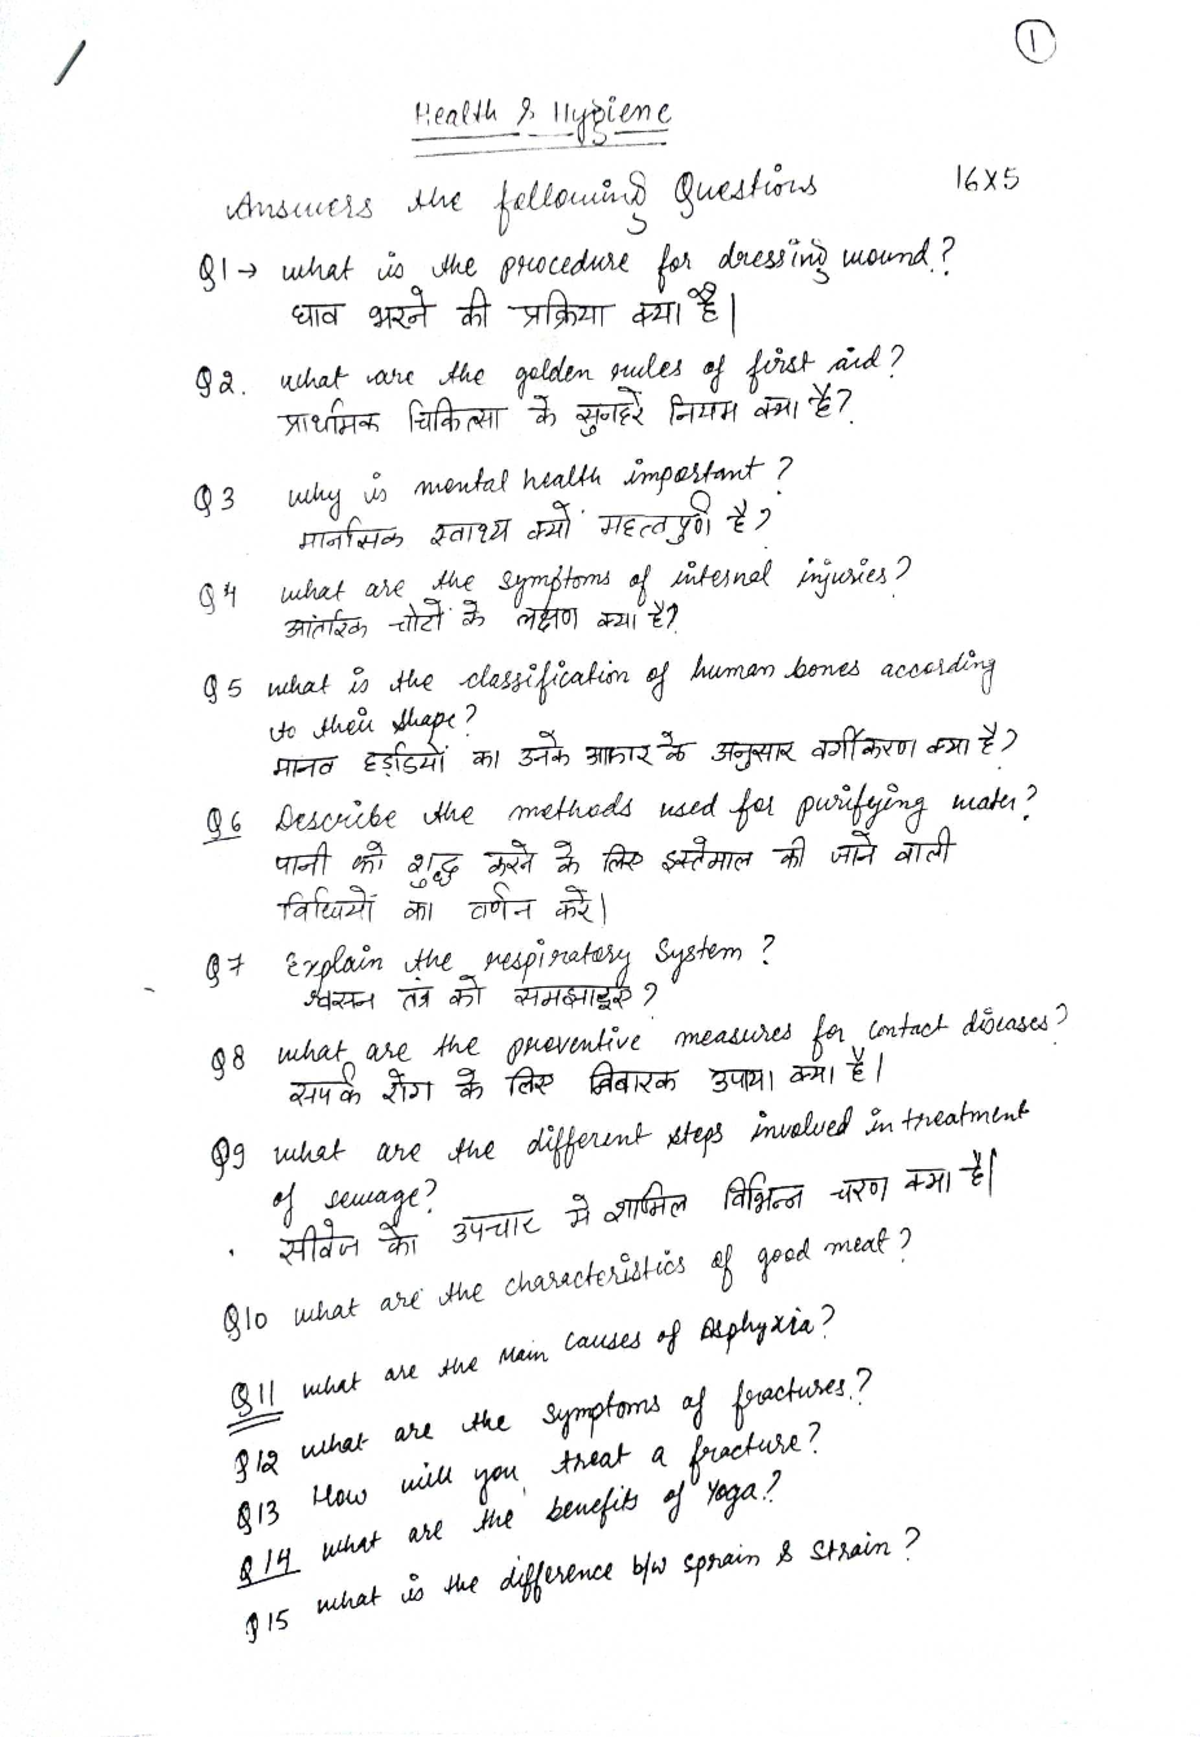 1
Health & Hygiene
Answers the following Questions 16X5
Q1→ what is the procedure for dressing wound?
घाव भरने की प्रक्रिया क्या है|
Q2. what are the golden rules of first aid?
प्रार्थामक चिकित्सा के सुनहरे नियम क्या है?
Q3 why is mental health important?
मानसिक स्वाथ्य क्यों महत्तपुर्ण है?
Q4 what are the symptoms of internal injuries?
आंतरिक चोटों के लक्षण क्या है?
Q5 what is the classification of human bones according
to their shape?
मानव हड्डियों का उनके आकार के अनुसार वर्गीकरण क्या है?
Q6 Describe the methods used for purifying water?
पानी को शुद्ध करने के लिए इस्तेमाल की जाने वाली
विधियों का वर्णन करें|
Q7 Explain the respiratory System?
श्वसन तंत्र को समझाइए?
Q8 what are the preventive measures for contact diseases?
सपर्क रोग के लिए निवारक उपाया क्या है|
Q9 what are the different steps involved in treatment
of sewage?
सीवेज के उपचार मे शामिल विभिन्न चरण क्या है|
Q10 what are the characteristics of good meat?
Q11 what are the Main causes of Asphyxia?
Q12 what are the symptoms of fractures?
Q13 How will you treat a fracture?
Q14 what are the benefits of Yoga?
Q15 what is the difference b/w sprain & strain?